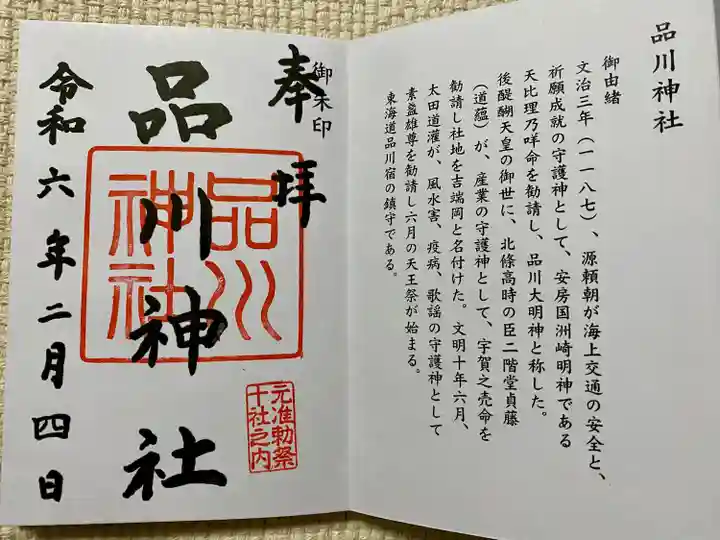 品川神社
御由緒
文治三年（一一八七）、源頼朝が海上交通の安全と、
祈願成就の守護神として、安房国洲崎明神である
天比理乃咩命を勧請し、品川大明神と称した。
後醍醐天皇の御世に、北條高時の臣二階堂貞藤
（道蘊）が、産業の守護神として、宇賀之売命を
勧請し社地を吉端岡と名付けた。文明十年六月、
太田道灌が、風水害、疫病、歌謡の守護神として
素盞雄尊を勧請し六月の天王祭が始まる。
東海道品川宿の鎮守である。
御朱印
奉拝
品川神社
品川
神社
元准勅祭
十社之内
令和六年二月四日